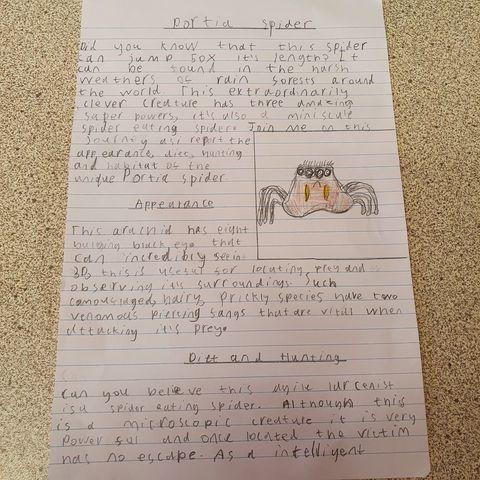 Portia spider
Did you know that this spider
can jump 50x it's length? It
can be found in the harsh
weathers of rain forests around
the world. This extraordinarily
clever creature has three amazing
super powers, it's also a miniscale
spider eating spider. Join me on this
journey as i report the
appearance, diet, hunting
and habitat of the
unique Portia spider.
Appearance
This arachnid has eight
bulging black eye that
can incredibly see in
3D, this is useful for locating prey and
observing its surroundings. Such
camouflaged, hairy, prickly species have two
venomous piercing fangs that are vitill when
attacking it's prey.
Diet and Hunting
Can you believe this agile larcenist
is a spider eating spider. Although this
is a microscopic creature it is very
powerful and once located the victim
has no escape. As a intelligent